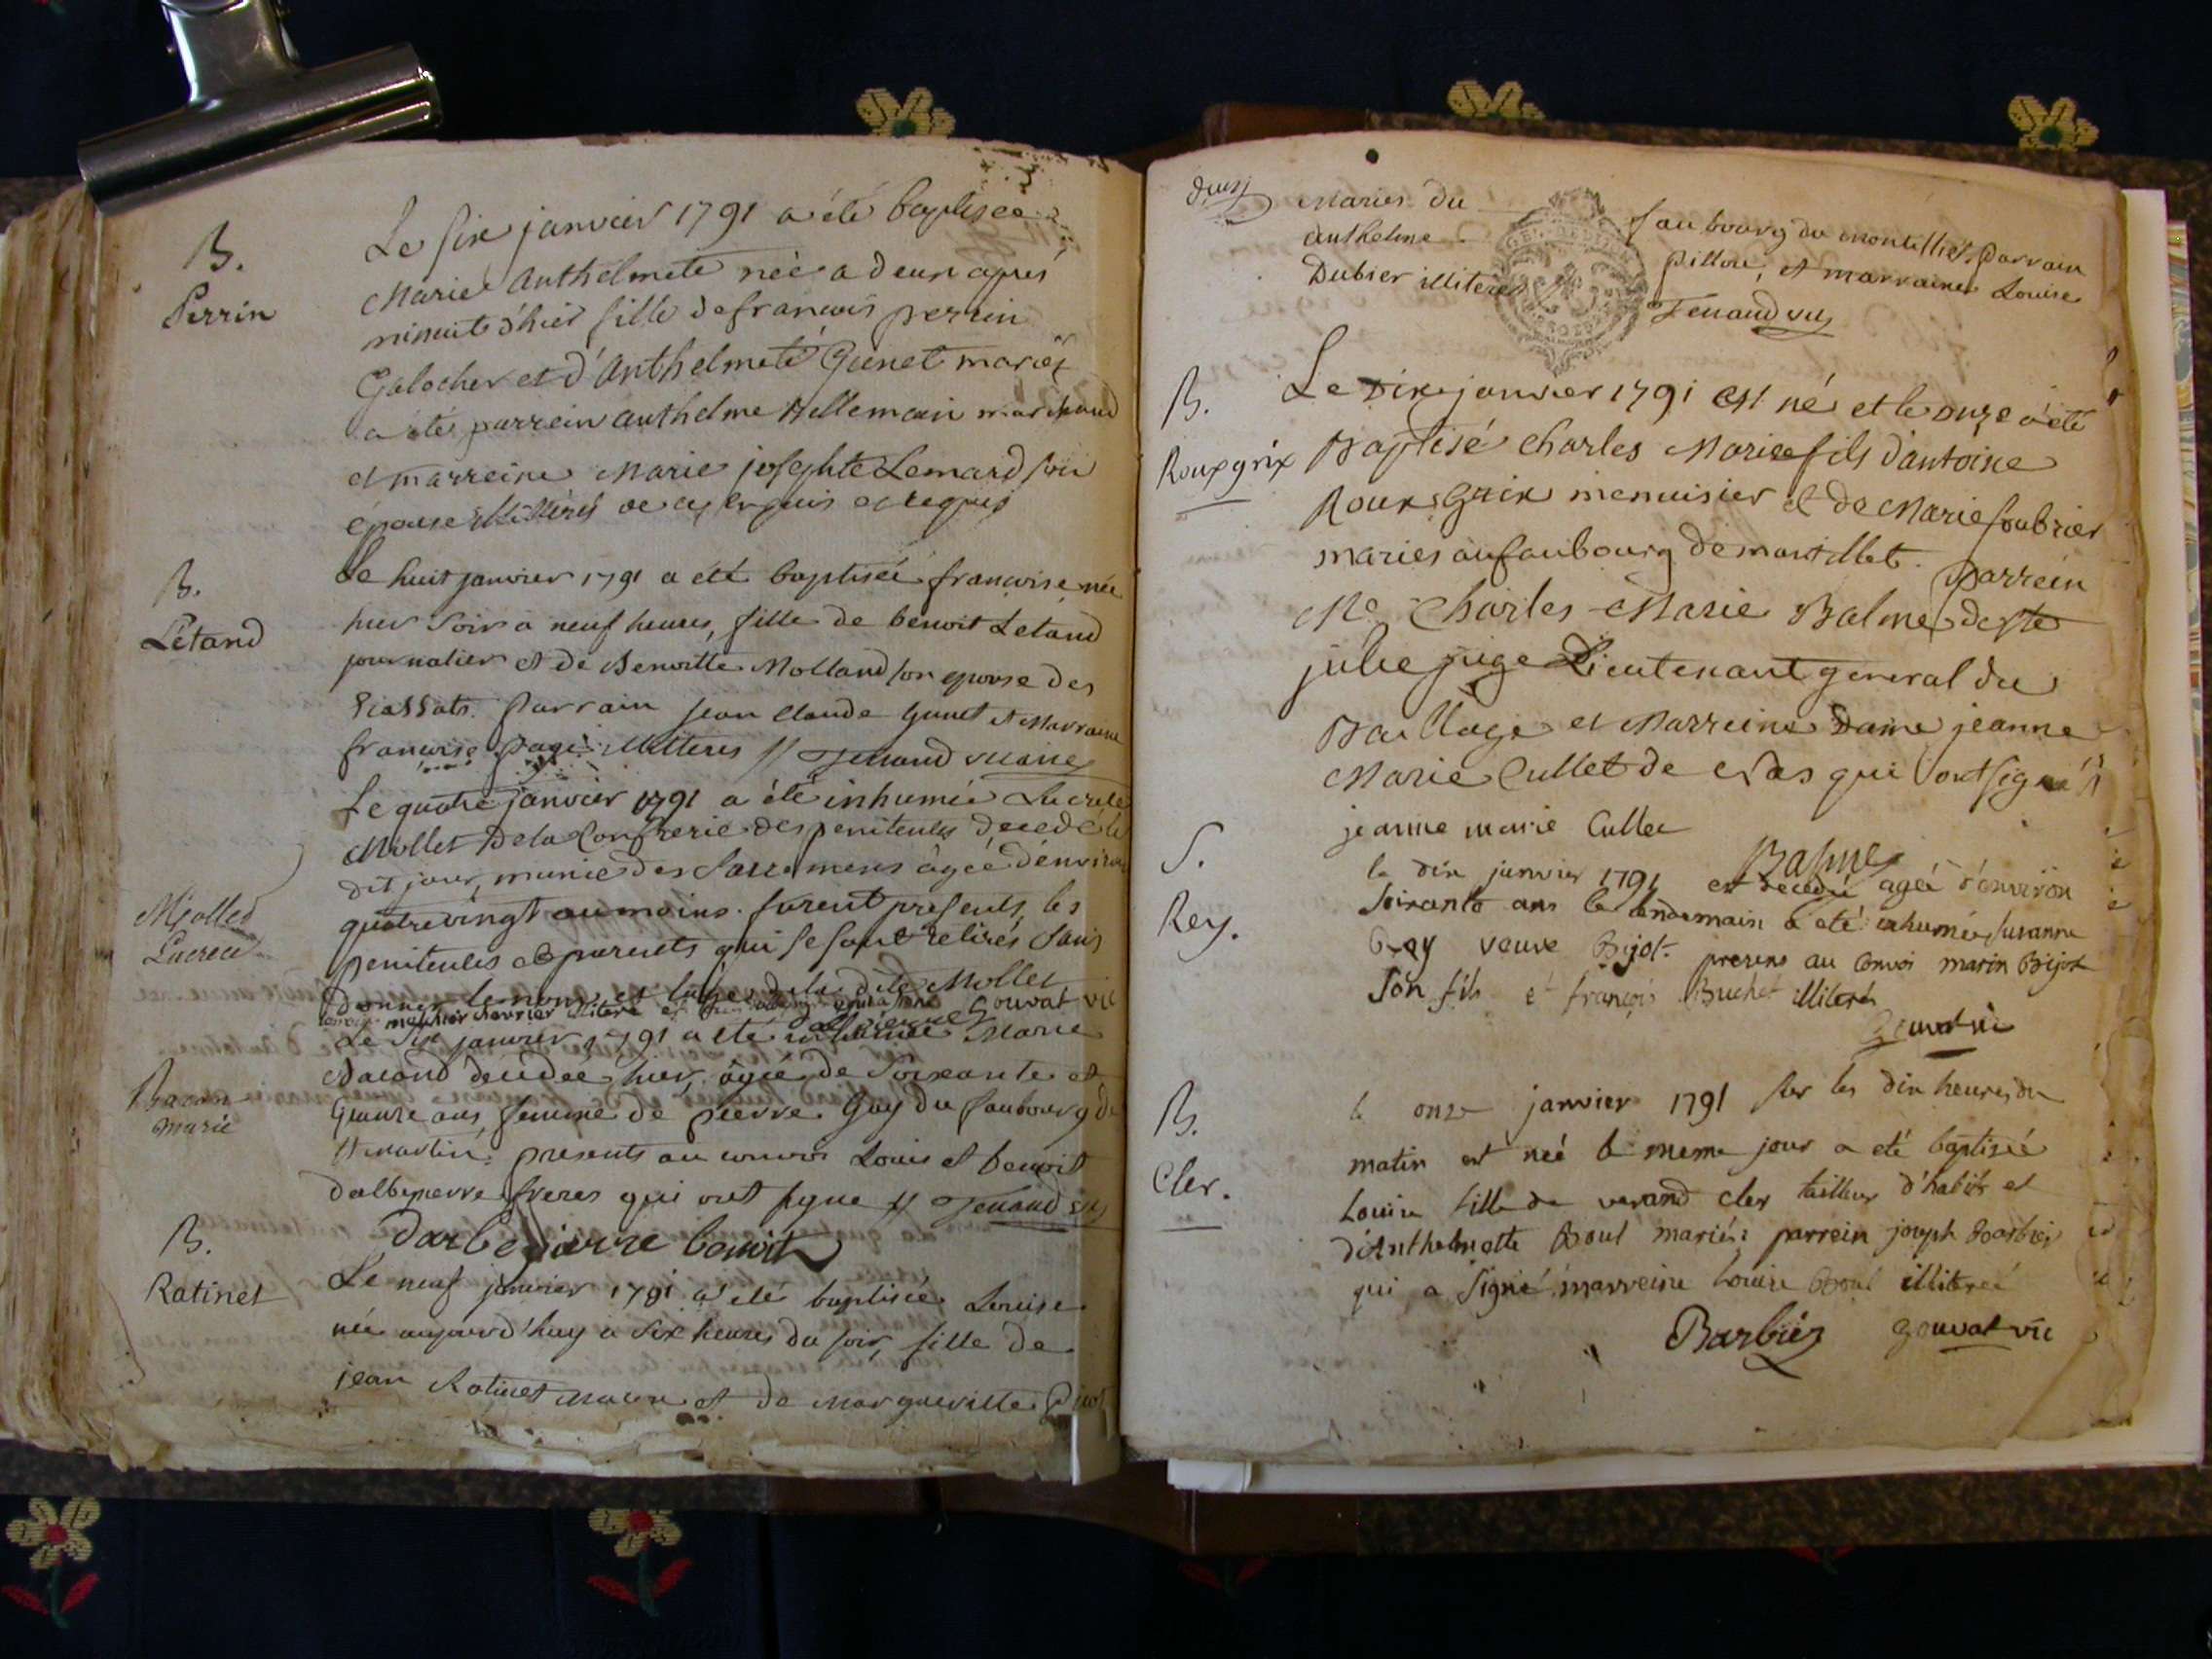 B.
Perrin
Le six janvier 1791 a été baptisee
Marie Anthelmete née a deux apres
minuit d'hier fille de francois perrin
Galocher et d'Anthelmete Gunet mariés
a été parrein anthelme Bellemain marchand
et marreine Marie josephte Lemard son
épouse illitérés de ce enquis et requis
B.
Létand
Le huit janvier 1791 a été baptisée francoise née
hier soir a neuf heures, fille de benoit Letand
journalier et de Benoitte Molland son epouse des
parrain jean Claude Gunet et Marraine
francoise page illiteres // Tenand vicaire
Mollet
Lucrece
Le quatre janvier 1791 a été inhumée Lucrece
Mollet De la Confrerie des penitentes decedée le
dit jour, munie des Sacremens âgée d'environ
quatrevingt au moins. furent presents les
penitentes et parents qui se sont retirés sans
Donner le nom et l'âge de la dite Mollet
Gouvat vic
Bacon
marie
Le Six janvier 1791 a été inhumée Marie
Bacand décédée hier, agée de Soixante et
Quinze ans, femme de pierre Guy du faubourg de
St martin. presents au convoi Louis et benoit
d'albepierre freres qui ont signe // Tenand vic
Darbepierre benoit
B.
Ratinet
Le neuf janvier 1791 a été baptisée Louise
née aujourd'huy a six heures du soir, fille de
jean Ratinet macon et de Margueritte
deux
Maries du faubourg du montillier, parrain
Anthelme pillon, et marraine Louise
Dubier illiteres Tenand vic
B.
Roux grix
Le Dix janvier 1791 est né et le onze a été
Baptisé Charles Marie fils d'antoine
Roux Grix menuisier et de Marie soubrier
maries au faubourg de montillet. parrein
Me Charles Marie Balme de Ste
julie juge Lieutenant general du
Baillage et Marreine Dame jeanne
Marie Cullet de qui ont signés
jeanne marie Cullet
Balme
S.
Rey.
le dix janvier 1791 est decedée agée d'environ
soixante ans le lendemain a eté inhumée susanne
Rey veuve Bijot. presens au convoi marin Bijot
son fils et françois Buchet illiterés
Gouvat vic
B.
Cler.
le onze janvier 1791 sur les dix heures du
matin est née le meme jour a eté baptisée
Louise fille de verand cler tailleur d'habits et
d'Anthelmette Boul mariés: parrein joseph Barbier
qui a signé, marreine Louise Boul illiterée
Barbier Gouvat vic